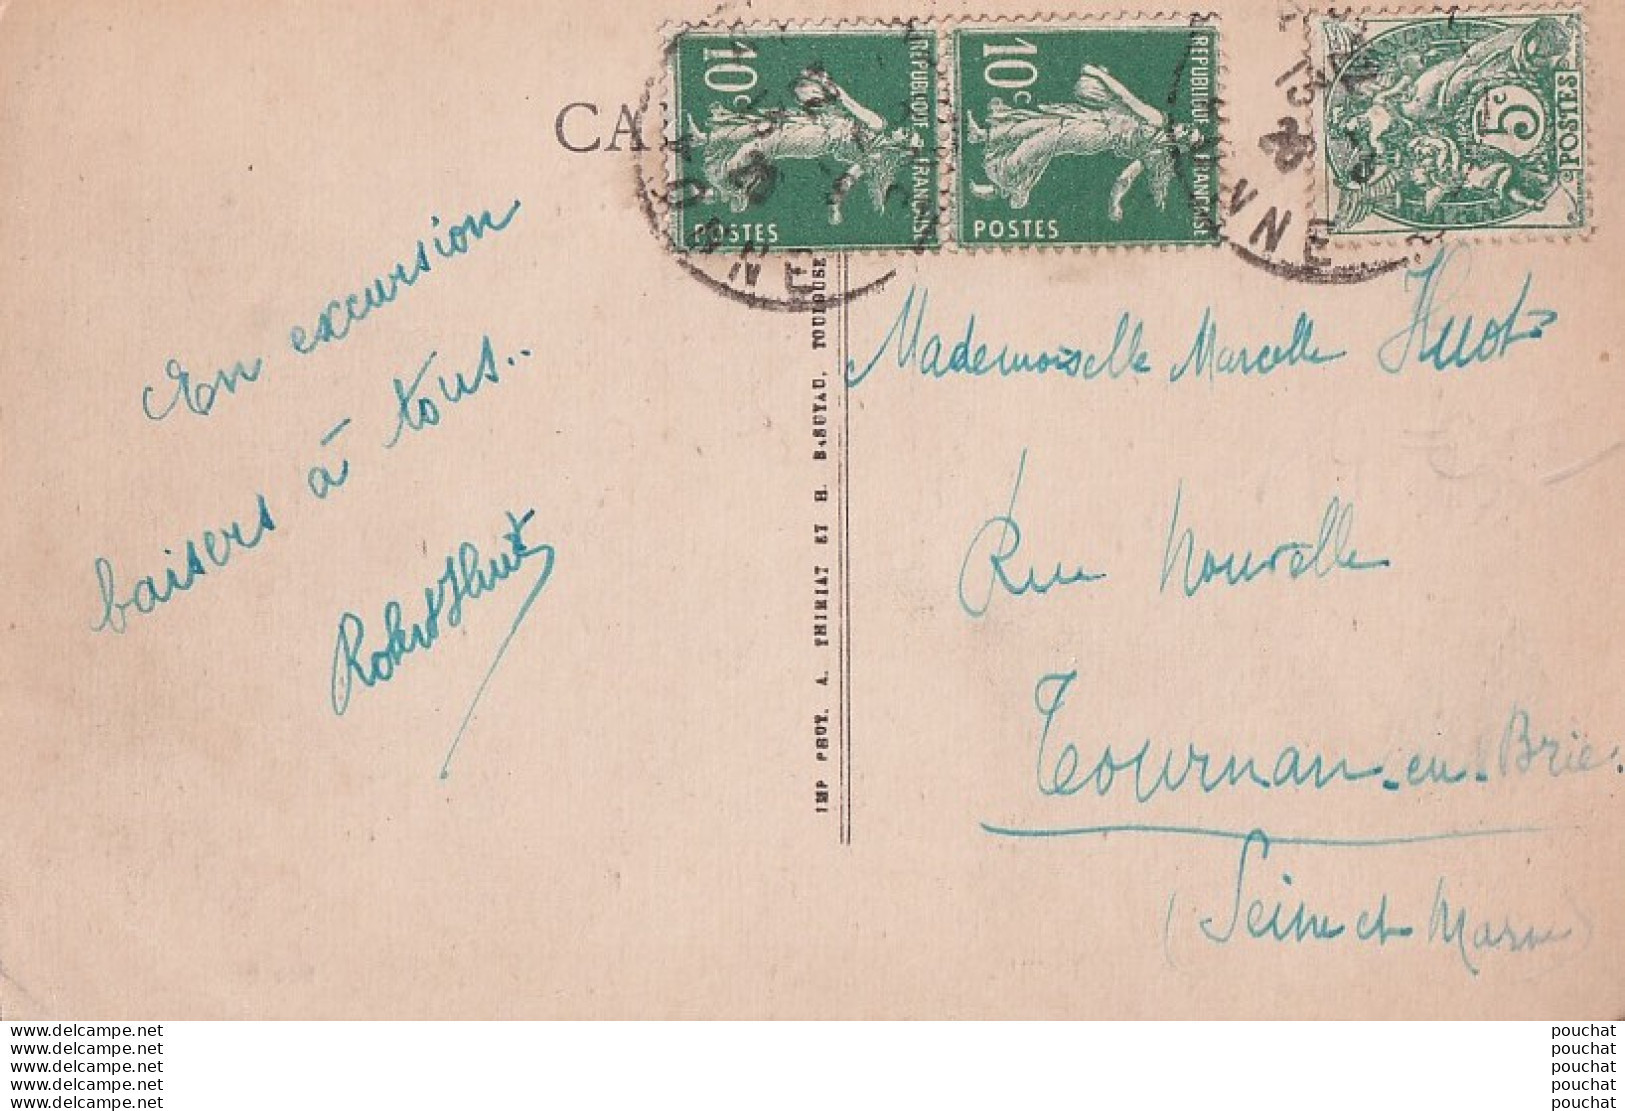 CA
10c
REPUBLIQUE FRANCAISE
POSTES
10c
REPUBLIQUE FRANCAISE
POSTES
5c
POSTES
En excursion
baisers à tous..
Robert Huot
IMP PHOT. A. THIRIAT ET H. BASUYAU, TOULOUSE
Mademoiselle Marcelle Huot
Rue Nouvelle
Tournan-en-Brie.
(Seine et Marne)
www.delcampe.net
www.delcampe.net
www.delcampe.net
www.delcampe.net
www.delcampe.net
pouchat
pouchat
pouchat
pouchat
pouchat